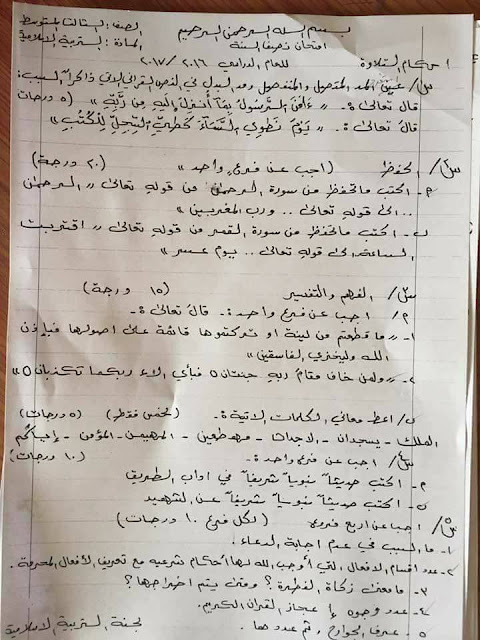 بسم الله الرحمن الرحيم
الصف: الثالث المتوسط
امتحان نصف السنة
المادة: التربية الاسلامية
للعام الدراسي ٢٠١٦ / ٢٠١٧
احكام التلاوة
س١/ عين المد المتصل والمنفصل ومد البدل في النص القرآني الآتي ذاكراً السبب:
قال تعالى: « ءَامَنَ الرَّسُولُ بِمَآ أُنزِلَ إِلَيْهِ مِن رَّبِّهِ » (٥ درجات)
قال تعالى: « يَوْمَ نَطْوِي السَّمَآءَ كَطَيِّ السِّجِلِّ لِلْكُتُبِ »
س٢/ الحفظ (اجب عن فرع واحد) (٢٠ درجة)
٢- اكتب ماتحفظ من سورة الرحمن من قوله تعالى « الرحمن
.. الى قوله تعالى .. ورب المغربين »
ب- اكتب ماتحفظ من سورة القمر من قوله تعالى « اقتربت
الساعة الى قوله تعالى .. يوم عسر »
س٣/ الفهم والتفسير (١٥ درجة)
٢/ اجب عن فرع واحد :- قال تعالى :-
١- « ما قطعتم من لينة او تركتموها قائمة على اصولها فبإذن
الله وليخزي الفاسقين »
٢- « ولمن خاف مقام ربه جنتان ٥ فبأي الاء ربكما تكذبان ٥ »
ب/ اعط معاني الكلمات الاتية :- (لخمس فقط) (٥ درجات)
الملك - يسجدان - الاجداث - مهطعين - المهيمن - المؤمن -
س٤/ اجب عن فرع واحد :- (١٠ درجات)
٢- اكتب حديثاً نبوياً شريفاً في اداب الطريق
ب- اكتب حديثاً نبوياً شريفاً عن الشهيد
س٥/ اجب عن اربع فروع (لكل فرع ١٠ درجات)
١- ما السبب في عدم اجابة الدعاء.
٢- عدد اقسام الافعال التي أوجب الله لها أحكام شرعيه مع تعريف الأفعال المحرمة.
٣- مامعنى زكاة الفطرة؟ ومتى يتم اخراجها؟
٤- عدد وجوه إعجاز القران الكريم.
٥- عرف الجوارح، ثم عدد هـا.
لجنة التربية الاسلامية